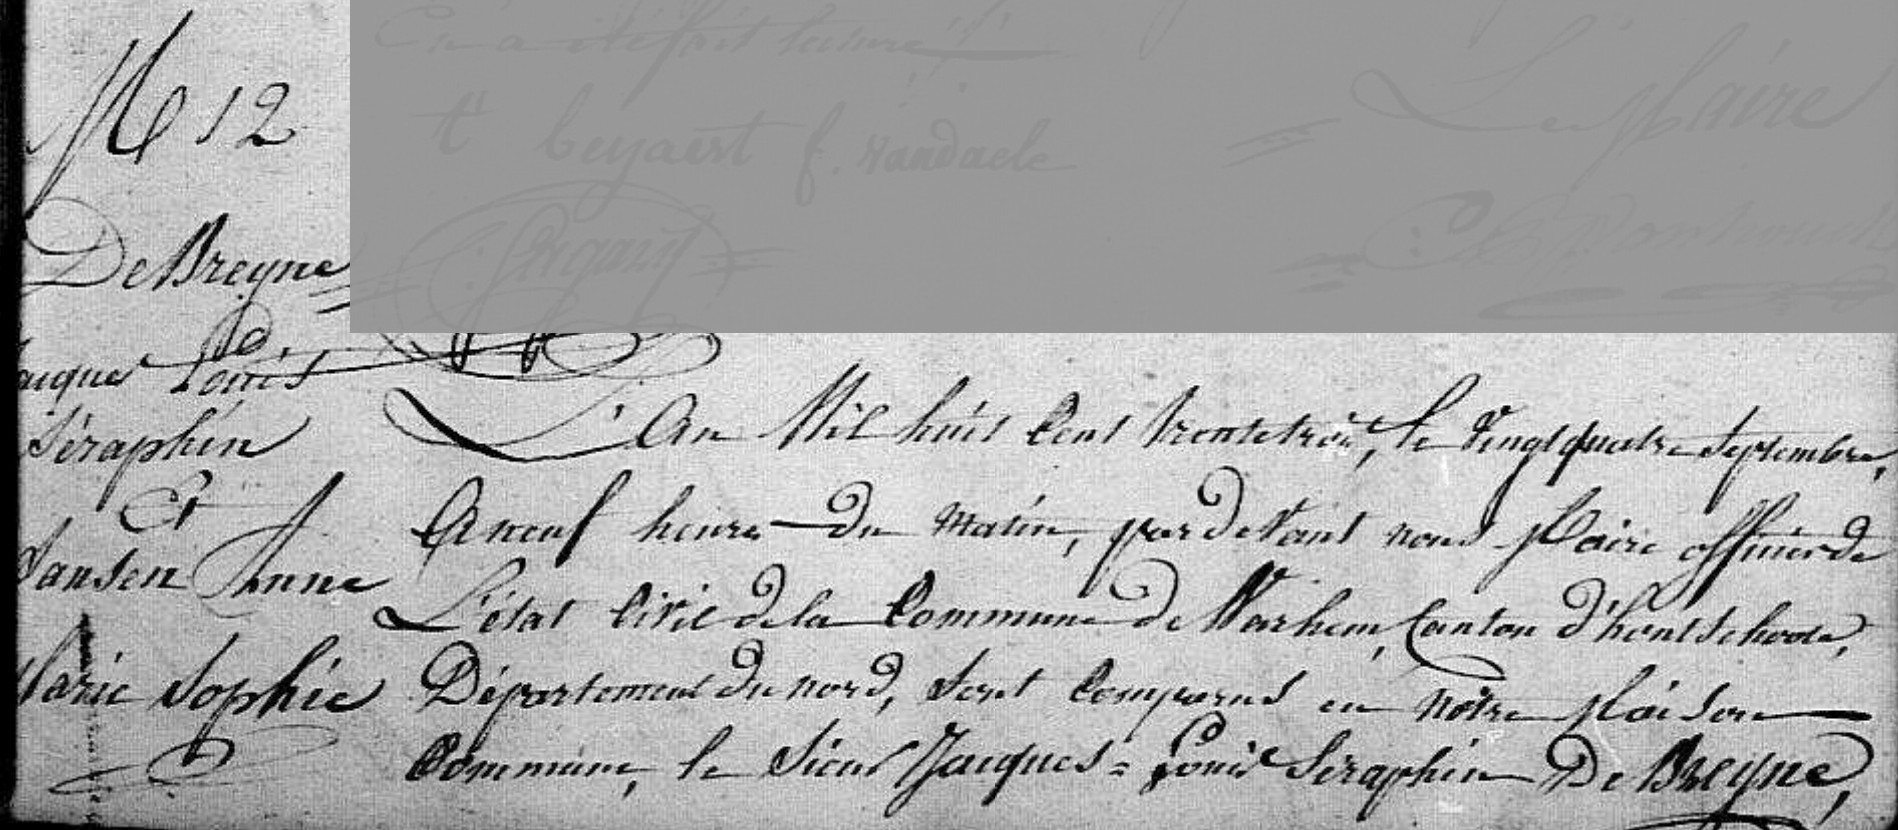 M 12
De Breyne
Jacques Louis
Séraphin
Et
Jansen Anne
Marie Sophie
L'An Mil huit Cent trentetrois, le Vingtquatre Septembre,
A neuf heures du matin, pardevant nous Maire officier de
L'état Civil de la Commune de Warhem, Canton d'hontschoote,
Département du nord, Sont Comparus en notre Maison
Commune, le Sieur Jacques=Louis Seraphin De Breyne,